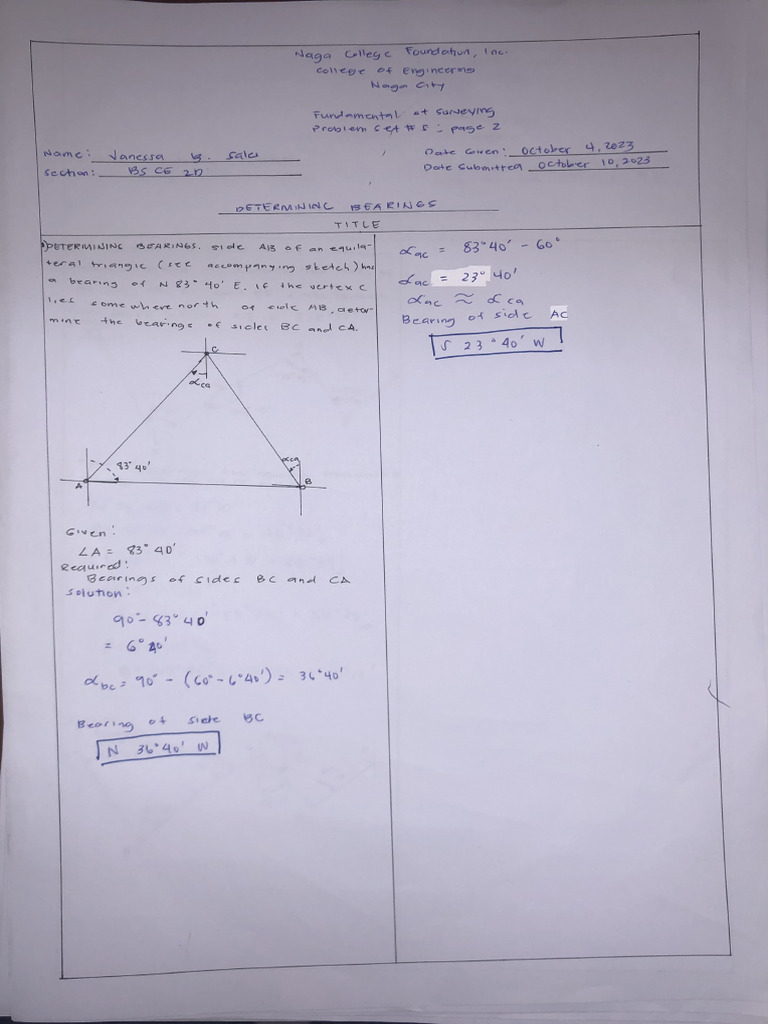 Naga College Foundation, Inc.
College of Engineering
Naga City
Fundamental of Surveying
Problem Set # 5 : page 2
Name: Vanessa B. Sales
Date Given: October 4, 2023
Section: BS CE 2D
Date Submitted October 10, 2023
DETERMINING BEARINGS
TITLE
DETERMINING BEARINGS. Side AB of an equila-
teral triangle (see accompanying sketch) has
a bearing of N 83° 40' E. if the vertex C
lies somewhere north of side AB, deter-
mine the bearings of sides BC and CA.
C
αca
83° 40'
αca
A
B
Given:
∠A = 83° 40'
Required:
Bearings of sides BC and CA
Solution:
90° - 83° 40'
= 6° 20'
αbc = 90° - (60° - 6°40') = 36°40'
Bearing of side BC
N 36°40' W
αac = 83°40' - 60°
αac = 23° 40'
αac ≈ αca
Bearing of side AC
S 23°40' W